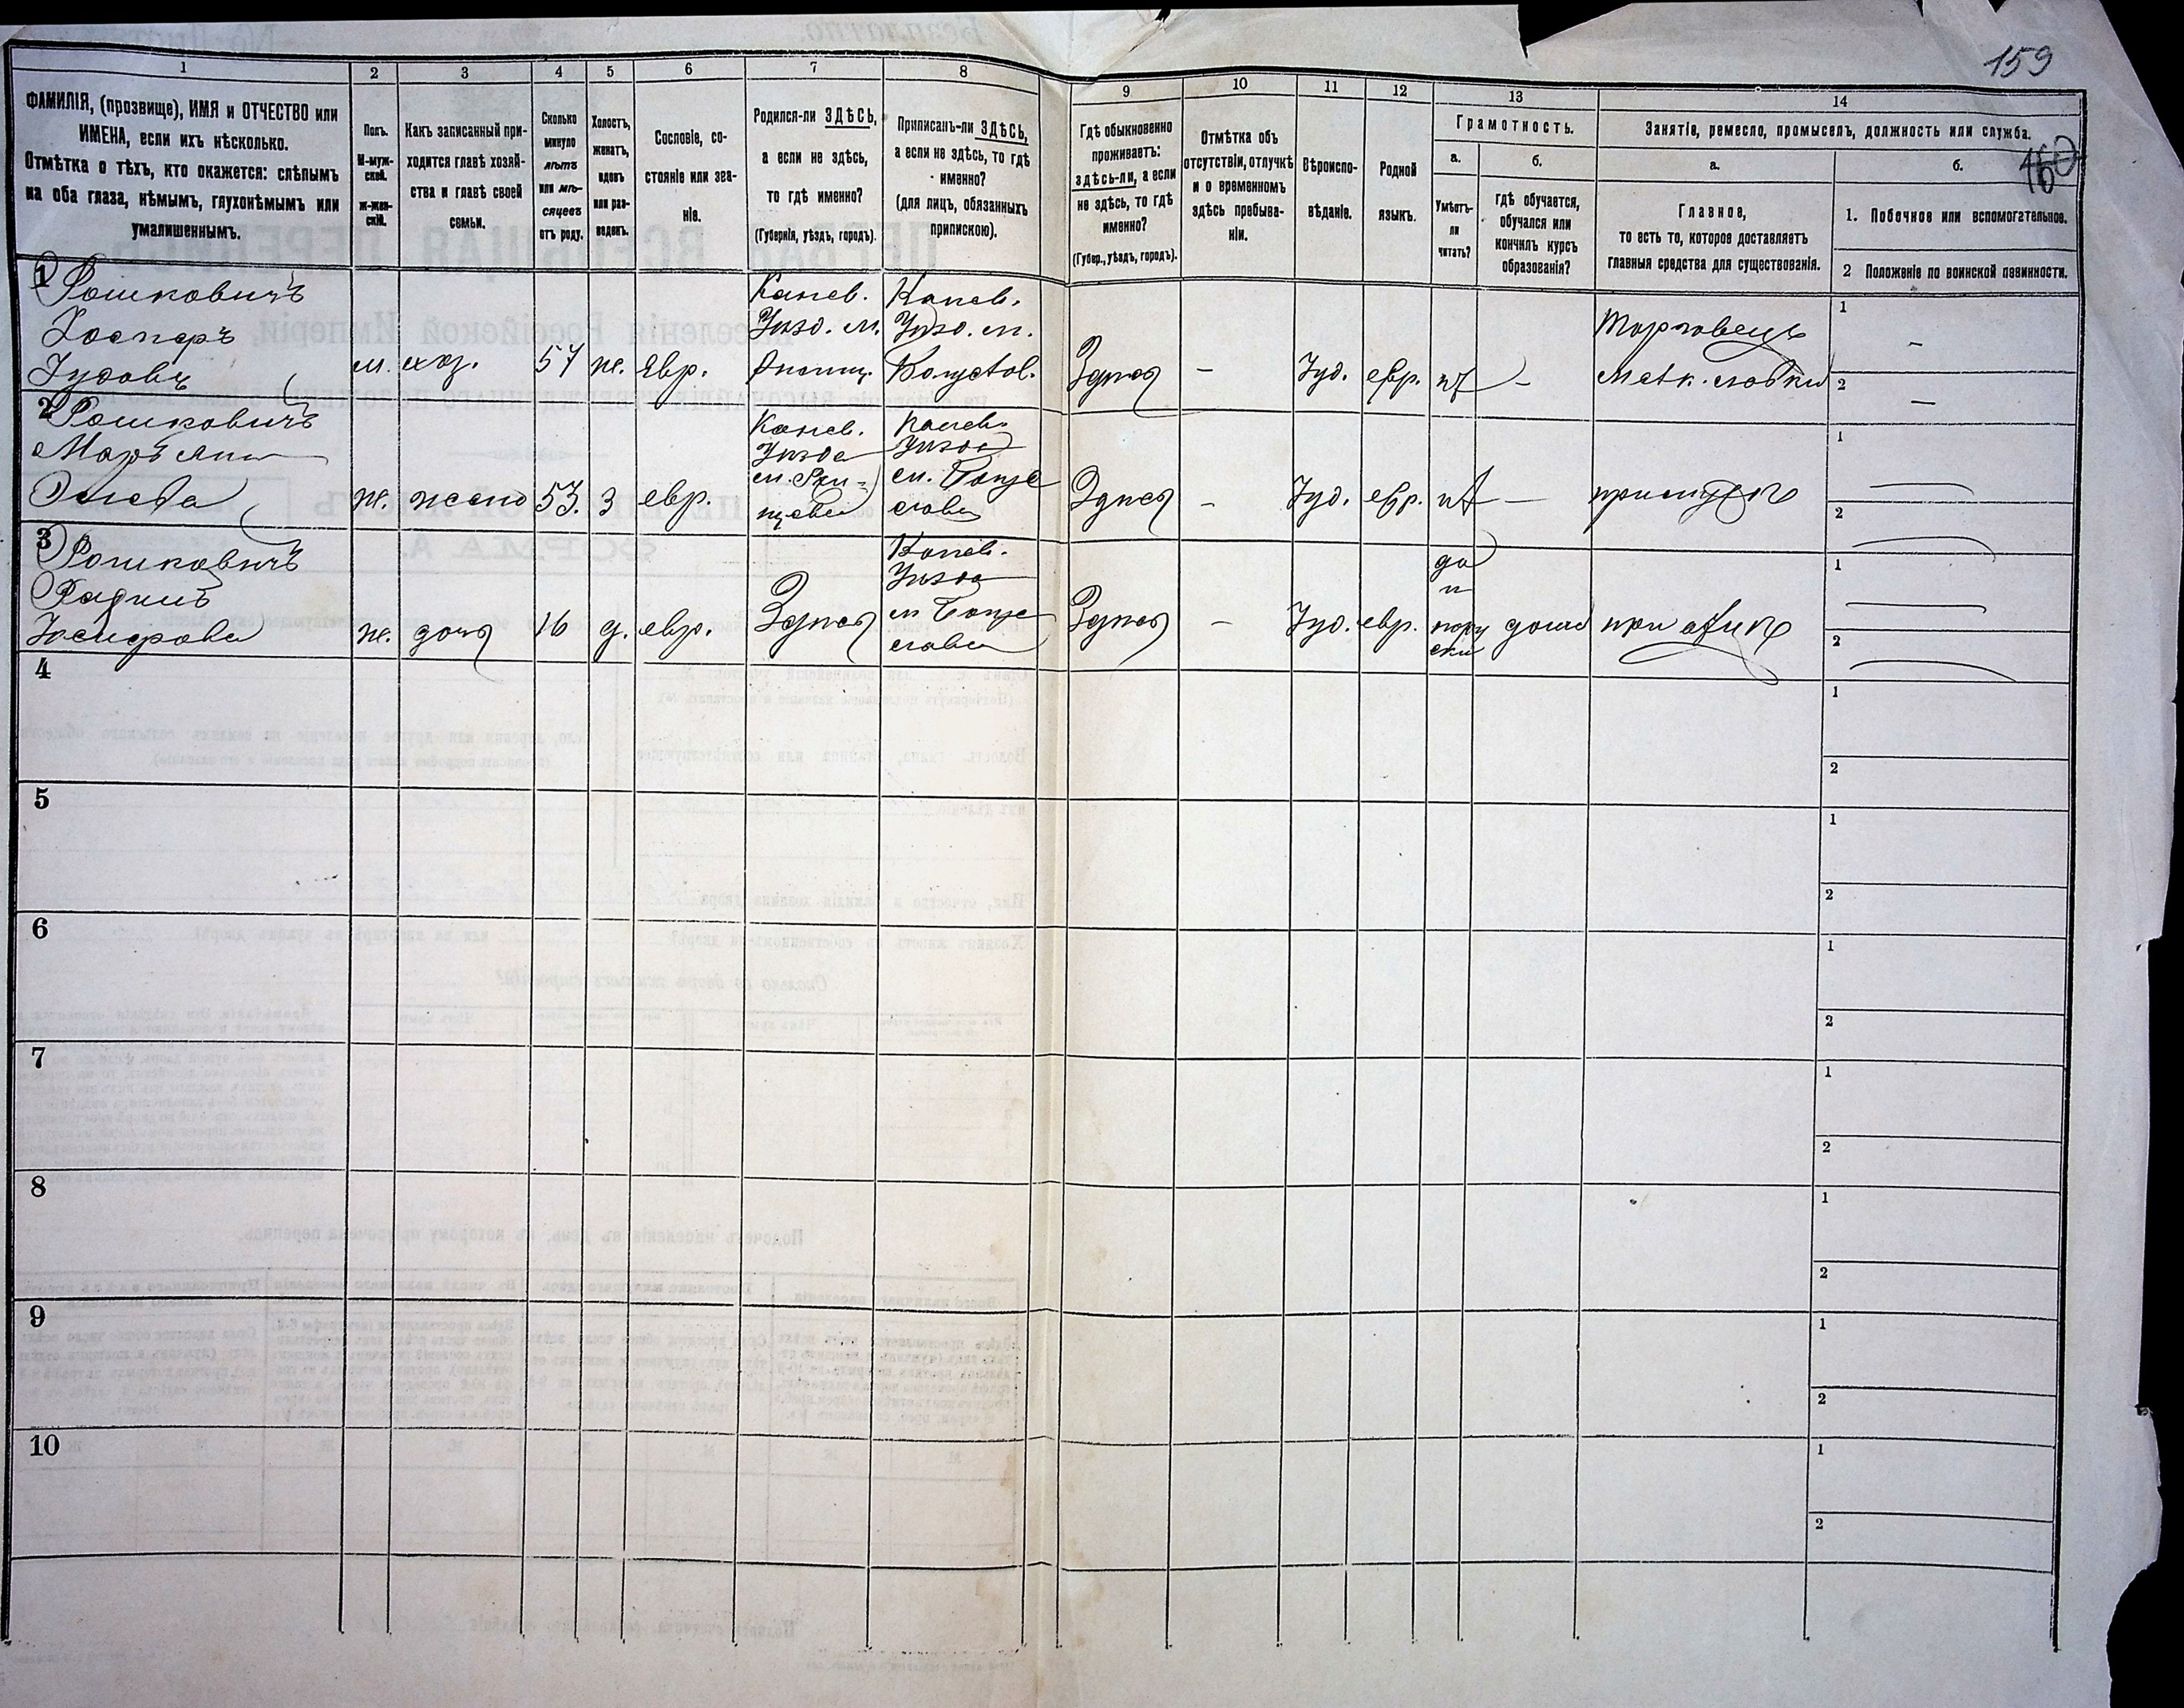 159
160
1
2
3
4
5
6
7
8
9
10
11
12
13
14
ФАМИЛІЯ, (прозвище), ИМЯ и ОТЧЕСТВО или
ИМЕНА, если ихъ нѣсколько.
Отмѣтка о тѣхъ, кто окажется: слѣпымъ
на оба глаза, нѣмымъ, глухонѣмымъ или
умалишеннымъ.
Полъ.
М-муж-
ской.
Ж-жен-
скій.
Какъ записанный при-
ходится главѣ хозяй-
ства и главѣ своей
семьи.
Сколько
минуло
лѣтъ
или мѣ-
сяцевъ
отъ роду.
Холостъ,
женатъ,
вдовъ
или раз-
веденъ.
Сословіе, со-
стояніе или зва-
ніе.
Родился-ли ЗДѢСЬ,
а если не здѣсь,
то гдѣ именно?
(Губернія, уѣздъ, городъ).
Приписанъ-ли ЗДѢСЬ,
а если не здѣсь, то гдѣ
именно?
(для лицъ, обязанныхъ
припискою).
Гдѣ обыкновенно
проживаетъ:
здѣсь-ли, а если
не здѣсь, то гдѣ
именно?
(Губер., уѣздъ, городъ).
Отмѣтка объ
отсутствіи, отлучкѣ
и о временномъ
здѣсь пребыва-
ніи.
Вѣроиспо-
вѣданіе.
Родной
языкъ.
Грамотность.
а.
б.
Умѣетъ-
ли
читать?
гдѣ обучается,
обучался или
кончилъ курсъ
образованія?
Занятіе, ремесло, промыселъ, должность или служба.
а.
б.
Главное,
то есть то, которое доставляетъ
главныя средства для существованія.
1. Побочное или вспомогательное.
2 Положеніе по воинской повинности.
1
Рошковичъ
м. хоз. 57 ж. Евр.
Канев.
Уѣзд. м.
Канев.
Уѣзд. м.
Богуслов.
Здѣсь – Іуд. евр. нѣт –
Торговецъ
1 –
2 –
2 Рошковичъ
ж. жена 53. З евр.
Канев.
Уѣзда
Канев.
Уѣзда
м. Богу
слава
Здѣсь – Іуд. евр. нѣт –
при мужѣ
1
2
3 Рошковичъ
Іосифова
ж. дочь 16 д. евр. Здѣсь
Канев.
Уѣзда
м Богу
слава
Здѣсь – Іуд. евр.
да
п
по ру
ски
дома при отцѣ
1
2
4
1
2
5
1
2
6
1
2
7
1
2
8
1
2
9
1
2
10
1
2